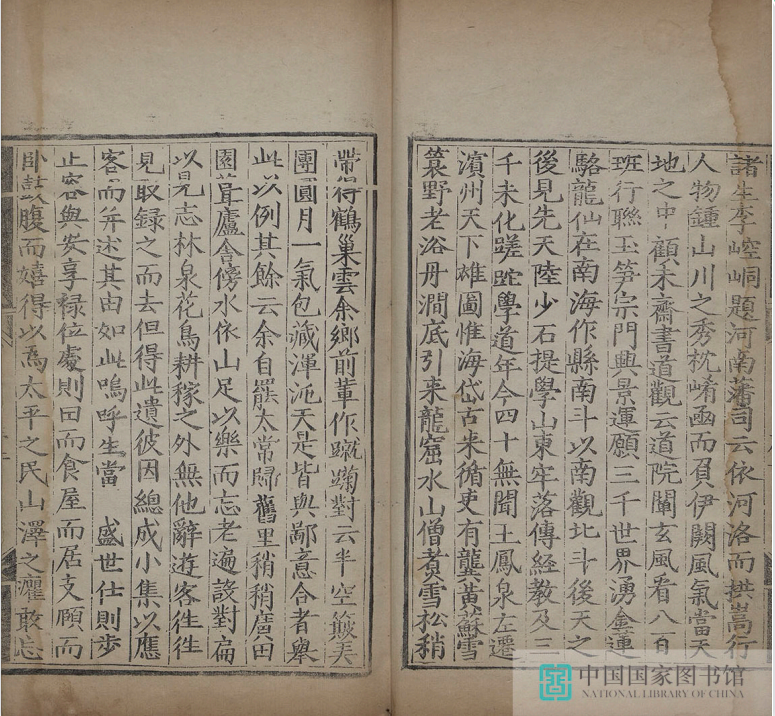 諸生李崆峒題河南藩司云依河洛而拱嵩行
人物鍾山川之秀枕崤函而負伊闕風氣當天
地之中顧未齋書道觀云道院闡玄風看八百
班行聯玉笋宗門興景運願三千世界湧金蓮
駱龍仙在南海作縣南斗以南觀北斗後天之
後見先天陸少石提學山東牢落傳經教及三
千未化蹉跎學道年今四十無聞王鳳泉左遷
濱州天下雄圖惟海岱古来循吏有龔黃蘇雪
簑野老浴丹澗底引来龍窟水山僧煮雪松稍
帶得鶴巢雲余鄉前輩作蹴踘對云半空簸美
團圓月一氣包藏渾沌天是皆與鄙意合者舉
此以例其餘云余自罷太常歸舊里稍稍廣田
園葺廬舍傍水依山足以樂而忘老遍設對扁
以見志林泉花鳥耕稼之外無他辭遊客徃徃
見取録之而去但得此遺彼因總成小集以應
客而并述其由如此嗚呼生當 盛世仕則歩
止容與安享禄位處則田而食屋而居支願而
卧鼓腹而嬉得以為太平之民山澤之癯敢忘
中国国家图书馆
NATIONAL LIBRARY OF CHINA